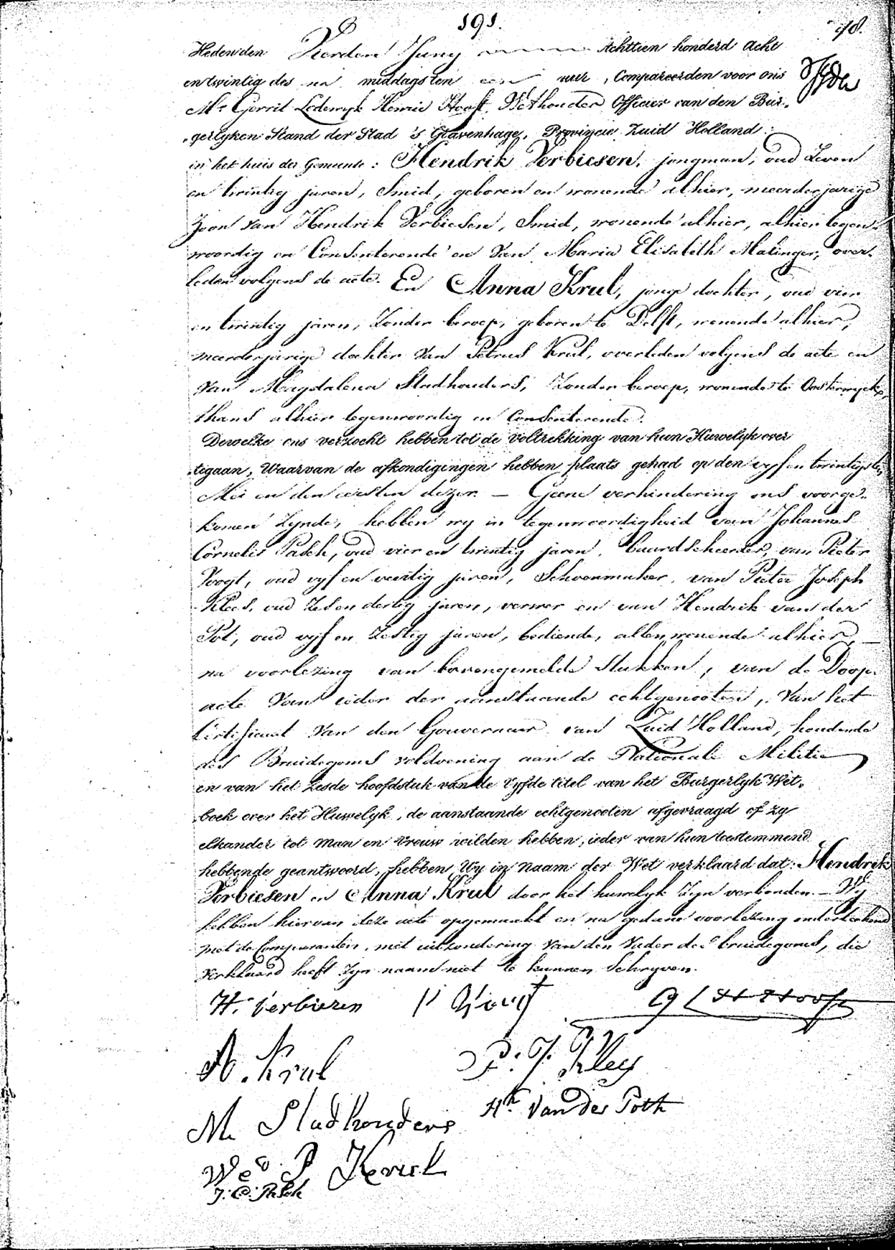 191.
98.
Heden den Vierden Juny Achttien honderd acht
en twintig des na middags ten een uur, Compareerden voor ons
Mr. Gerrit Lodewyk Henric Hooft, Wethouder Officier van den Bur-
gerlyken Stand der Stad 's Gravenhage, Provincie Zuid Holland
in het huis der Gemeente: Hendrik Verbiesen, jongman, oud Zeven
en twintig jaren, Smid, geboren en wonende alhier, meerderjarige
Zoon van Hendrik Verbiesen, Smid, wonende alhier, alhier tegen-
woordig en Consenterende en van Maria Elisabeth Matinger, over-
leden volgens de acte. En Anna Krul, jonge dochter, oud vier
en twintig jaren, Zonder beroep, geboren te Delft, wonende alhier,
meerderjarige dochter van Petrus Krul, overleden volgens de acte en
van Magdalena Stadhouders, Zonder beroep, wonende te Oosterwyck
thans alhier tegenwoordig en Consenterende.
Dewelke ons verzocht hebben tot de voltrekking van hun Huwelyk over
te gaan, waarvan de afkondigingen hebben plaats gehad op den vyf en twintigsten
Mei en den eersten dezer. — Geene verhindering ons voorge-
komen Zynde, hebben wy in tegenwoordigheid van Johannes
Cornelis Patch, oud vier en twintig jaren, baardscheerder, van Pieter
Voogt, oud vyf en veertig jaren, Schoenmaker, van Pieter Joseph
Klees, oud Zes en dertig jaren, verwer en van Hendrik van der
Pot, oud vyf en Zestig jaren, bediende, allen wonende alhier,
na voorlezing van bovengemelde Stukken, van de Doop-
acte van ieder der aanstaande echtgenooten, van het
Certificaat van den Gouverneur van Zuid Holland, houdende
des Bruidegoms voldoening aan de Nationale Militie
en van het zesde hoofdstuk van de vyfde titel van het Burgerlyk Wet-
boek over het Huwelyk, de aanstaande echtgenooten afgevraagd of zy
elkander tot Man en Vrouw wilden hebben, ieder van hun toestemmend
hebbende geantwoord, hebben Wy in Naam der Wet verklaard dat: Hendrik
Verbiesen en Anna Krul door het huwelyk zyn verbonden. — Wy
hebben hiervan deze acte opgemaakt en na gedane voorlezing onderteekend
met de Comparanten, met uitzondering van den Vader des bruidegoms, die
verklaard heeft Zyn naam niet te kunnen Schryven.
H. Verbiezen P Voogt G L H Hooft
A. Krul P: J. Kley
M Stadhouders Hk Van der Poth
Wed P Kerul
J. C. Patch